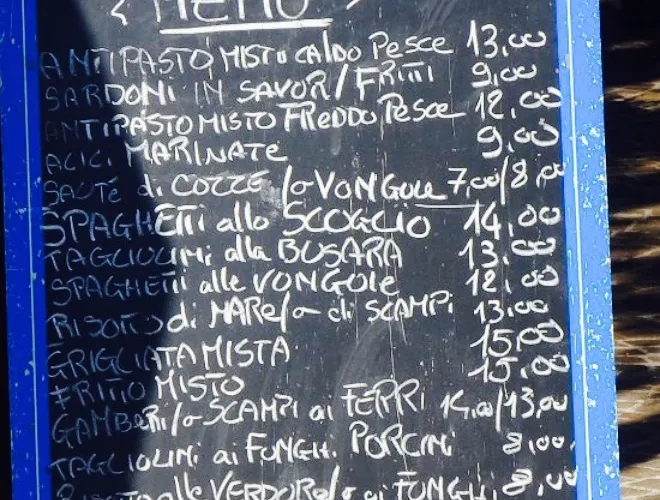 MENÙ
ANTIPASTO MISTO CALDO Pesce 13,00
SARDONI IN SAVOR/FRITTI 9,00
ANTIPASTO MISTO FREDDO Pesce 12,00
ALICI MARINATE 9,00
SAUTÉ di COZZE /o VONGOLE 7,00/8,00
SPAGHETTI allo SCOGLIO 14,00
TAGLIOLINI alla BUSARA 13,00
SPAGHETTI alle VONGOLE 12,00
RISOTTO di MARE/o di SCAMPI 13,00
GRIGLIATA MISTA 15,00
FRITTO MISTO 15,00
GAMBERI/o SCAMPI ai FERRI 14,00/13,00
TAGLIOLINI ai FUNGHI PORCINI 8,00
alle VERDURE/o ai FUNGHI 8,00